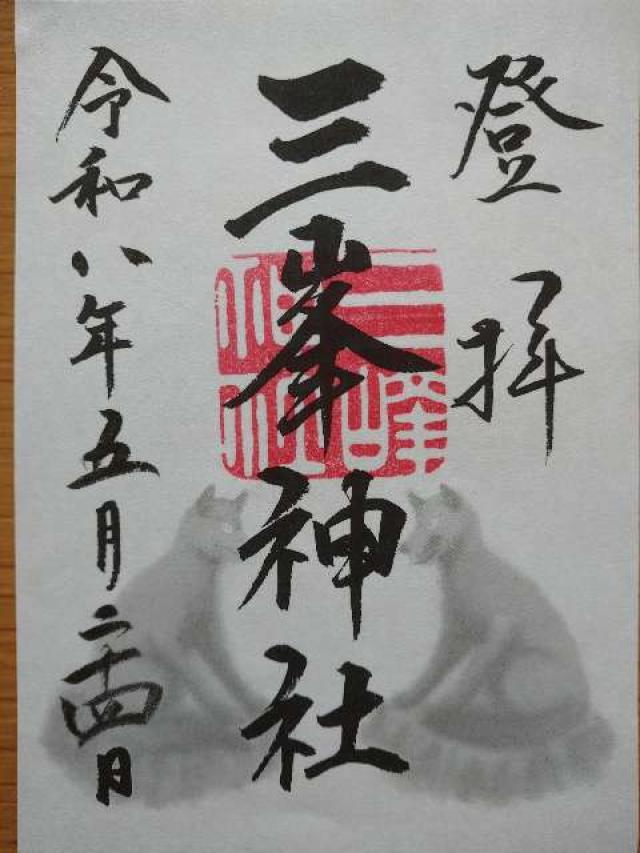 登拝
三峯神社
令和八年五月二十四日